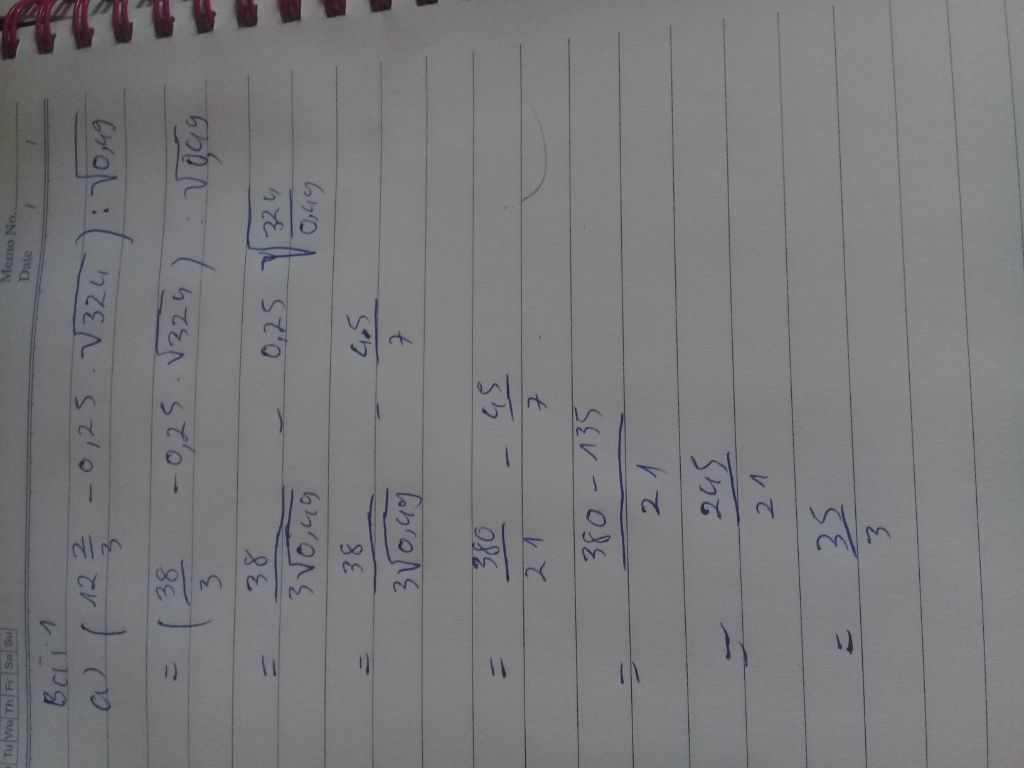 Memo No.
Date / /
Tu We Th Fr Sa Su
Bài 1
a) ( 12 2/3 - 0,25 . √324 ) : √0,49
= ( 38/3 - 0,25 . √324 ) : √0,49
= 38/3√0,49 - 0,25 √324/0,49
= 38/3√0,49 - 45/7
= 380/21 - 45/7
= 380 - 135/21
= 245/21
= 35/3